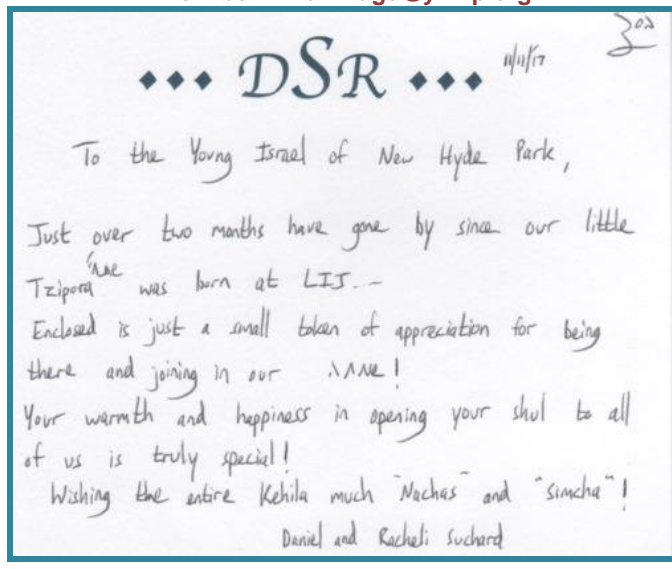 בס"ד
DSR 11/11/17
To the Young Israel of New Hyde Park,
Just over two months have gone by since our little
Tzipora שתחי' was born at LIJ.-
Enclosed is just a small token of appreciation for being
there and joining in our שמחה!
Your warmth and happiness in opening your shul to all
of us is truly special!
Wishing the entire Kehila much "Nachas" and "simcha"!
Daniel and Racheli Suchard